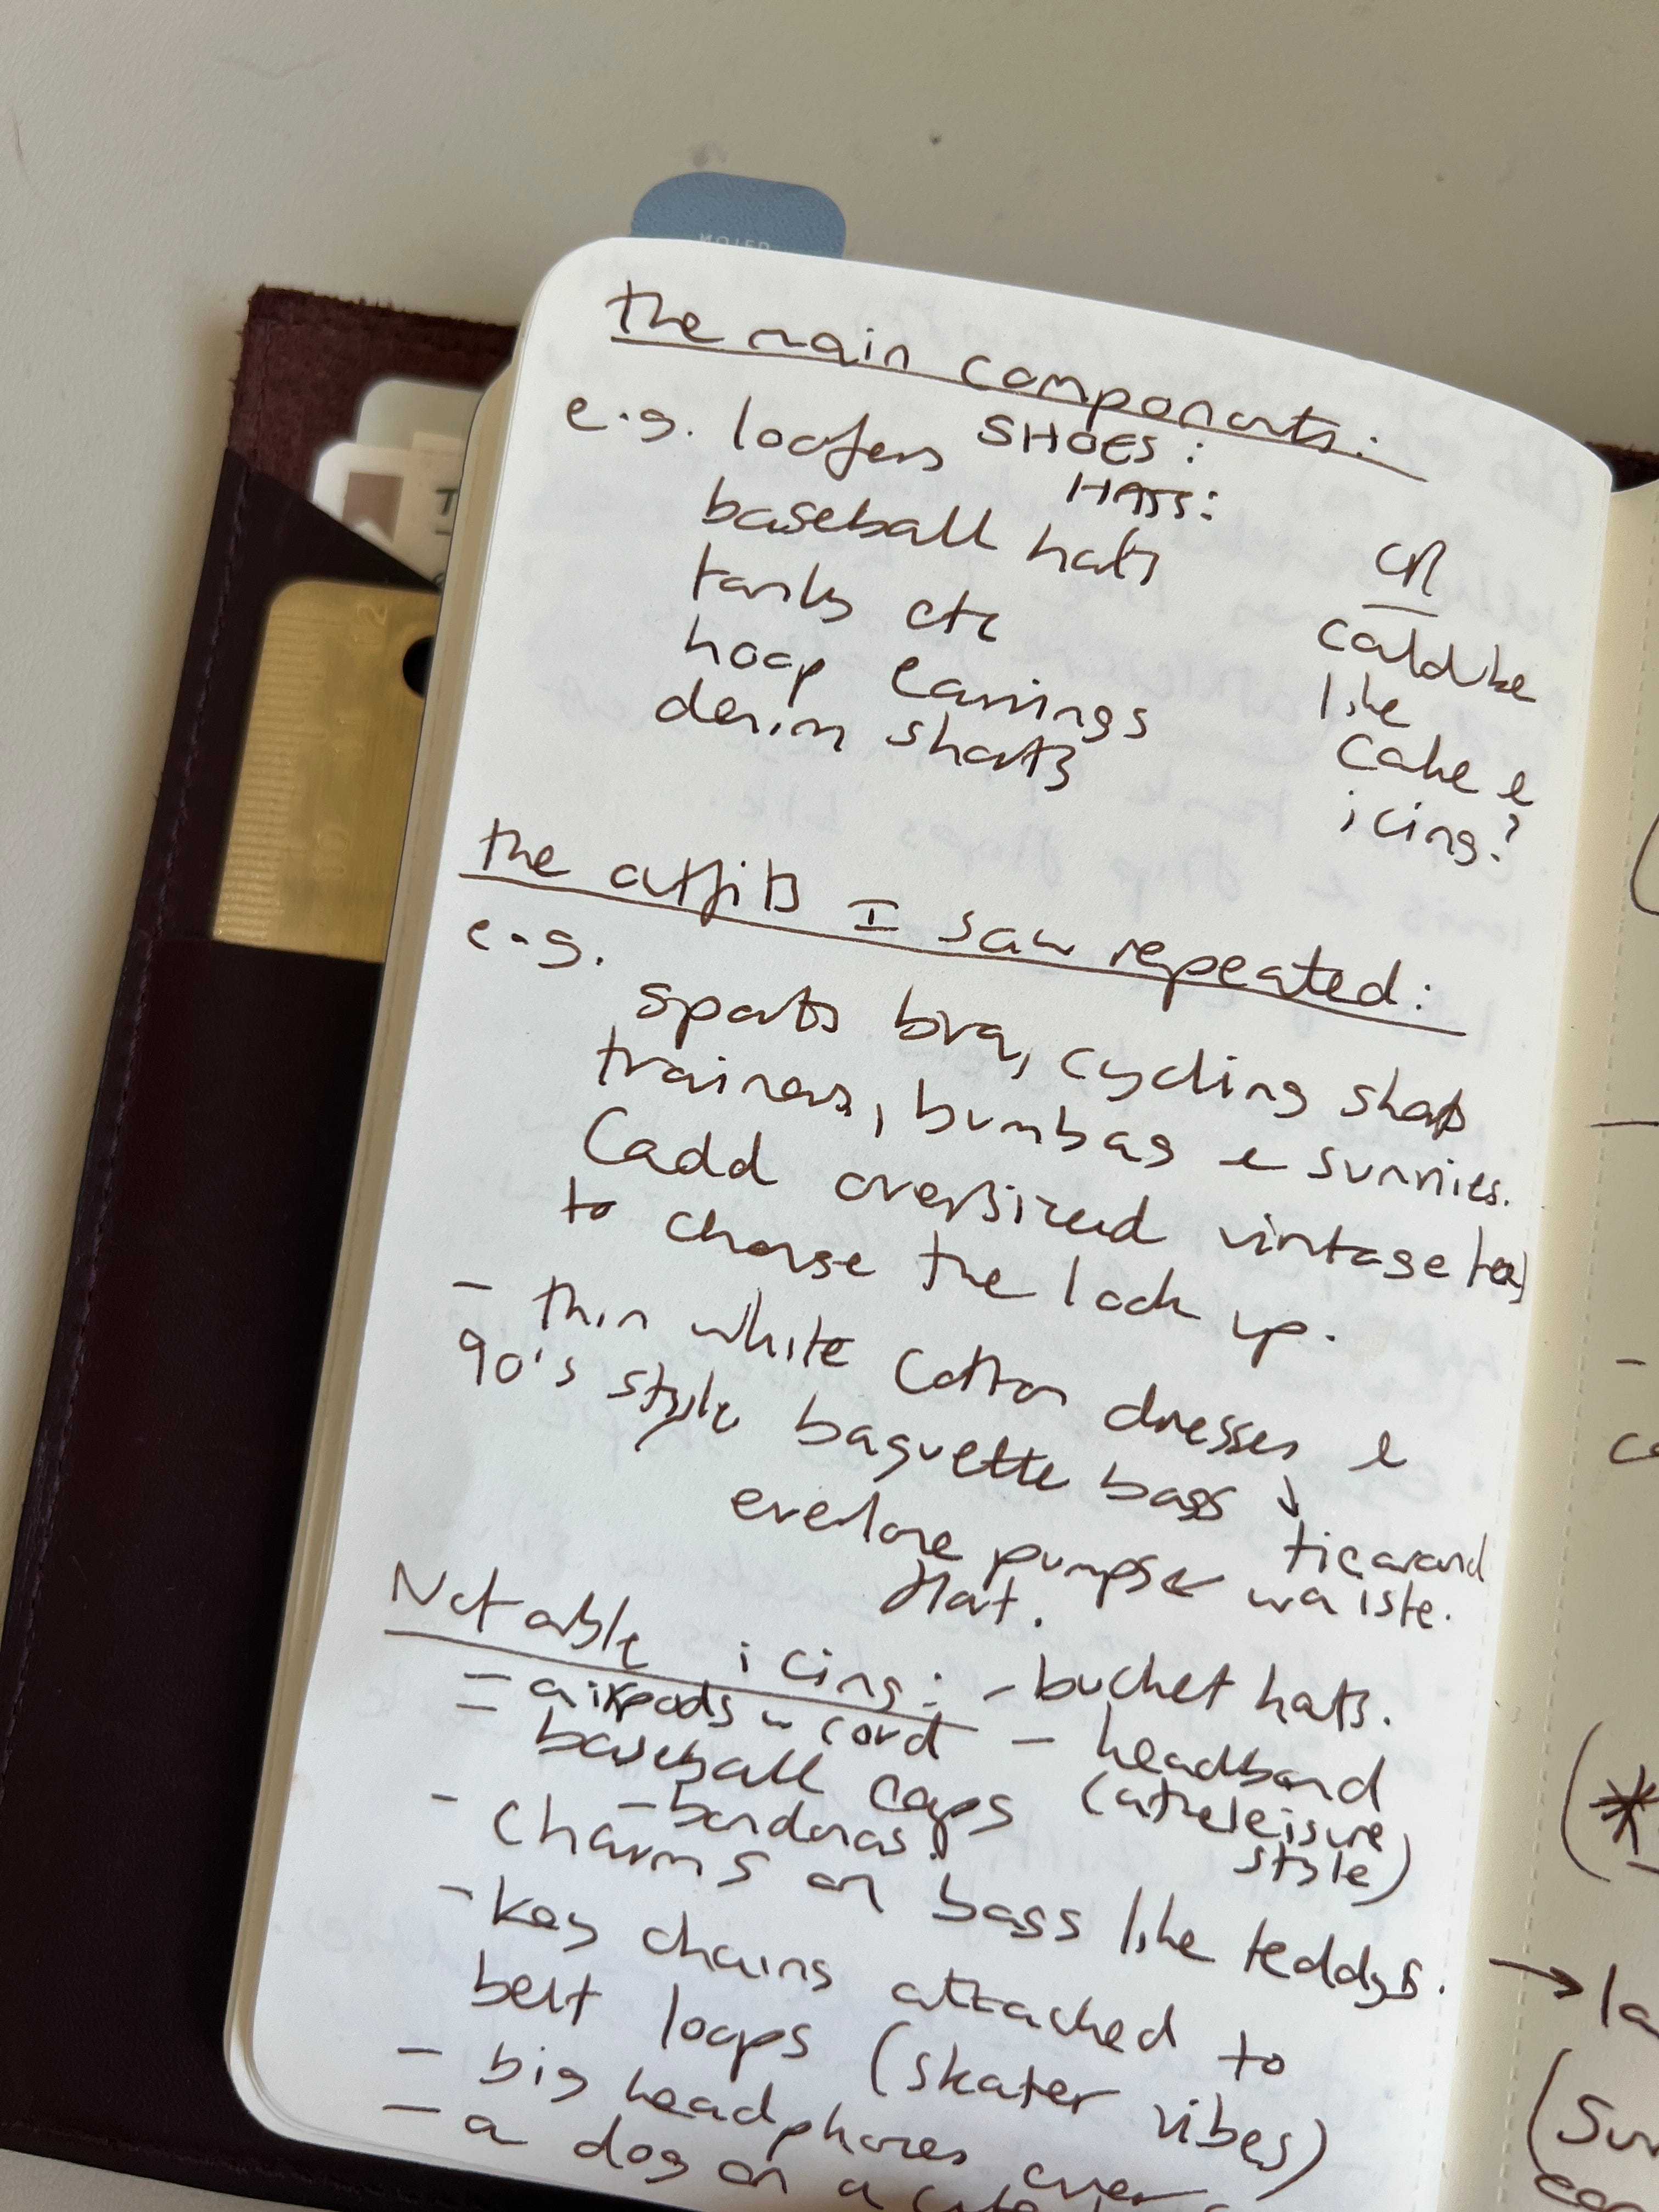 The main components:
e.g. loafers SHOES:
HATS:
baseball hats
tanks etc
hoop earrings
denim shorts
OR
could be
like
cake &
icing?
The outfits I saw repeated:
e.g.
sports bra, cycling shorts
trainers, bumbag & sunnies.
(add oversized vintage tee)
to change the look up.
- thin white cotton dresses &
90's style baguette bags ↓
tie around
waiste.
everlane pumps ←
flat.
Notable icing: - bucket hats.
- airpods w cord - headband
- baseball caps (atheleisure
style)
- bandanas.
- charms on bags like teddys.
- key chains attached to
belt loops (skater vibes)
- big headphones over
- a dog on a